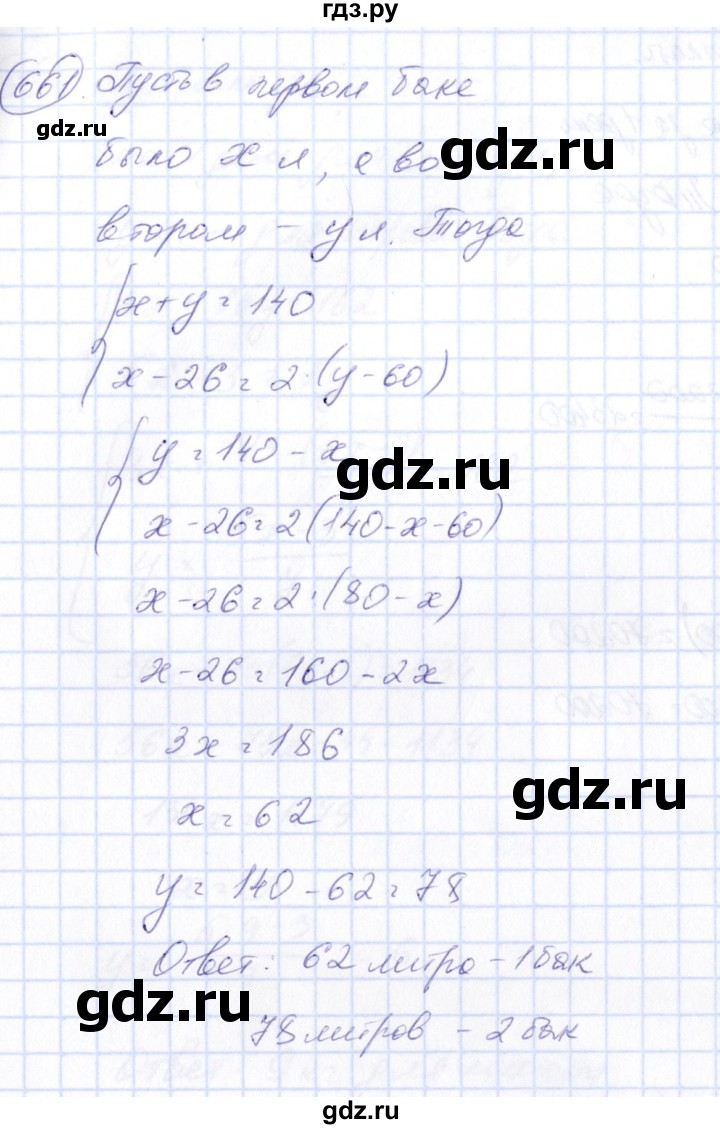 гдз.ру
661. Пусть в первом баке
gdz.ru
было x л, а во
gdz.ru
втором - y л. Тогда
x + y = 140
x - 26 = 2·(y - 60)
y = 140 - x
gdz.ru
x - 26 = 2(140 - x - 60)
x - 26 = 2·(80 - x)
x - 26 = 160 - 2x
3x = 186
gdz.ru
x = 62
y = 140 - 62 = 78
Ответ: 62 литра - 1 бак
gdz.ru
78 литров - 2 бак
gdz.ru